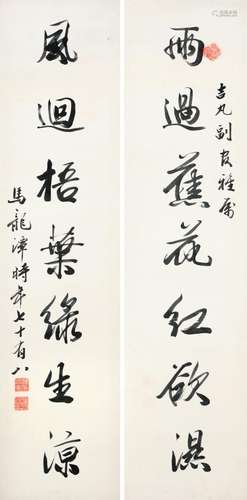 吉丸副官雅属
雨過蕉花紅欲濕
風迴梧葉綠生涼
馬龍潭時年七十有八